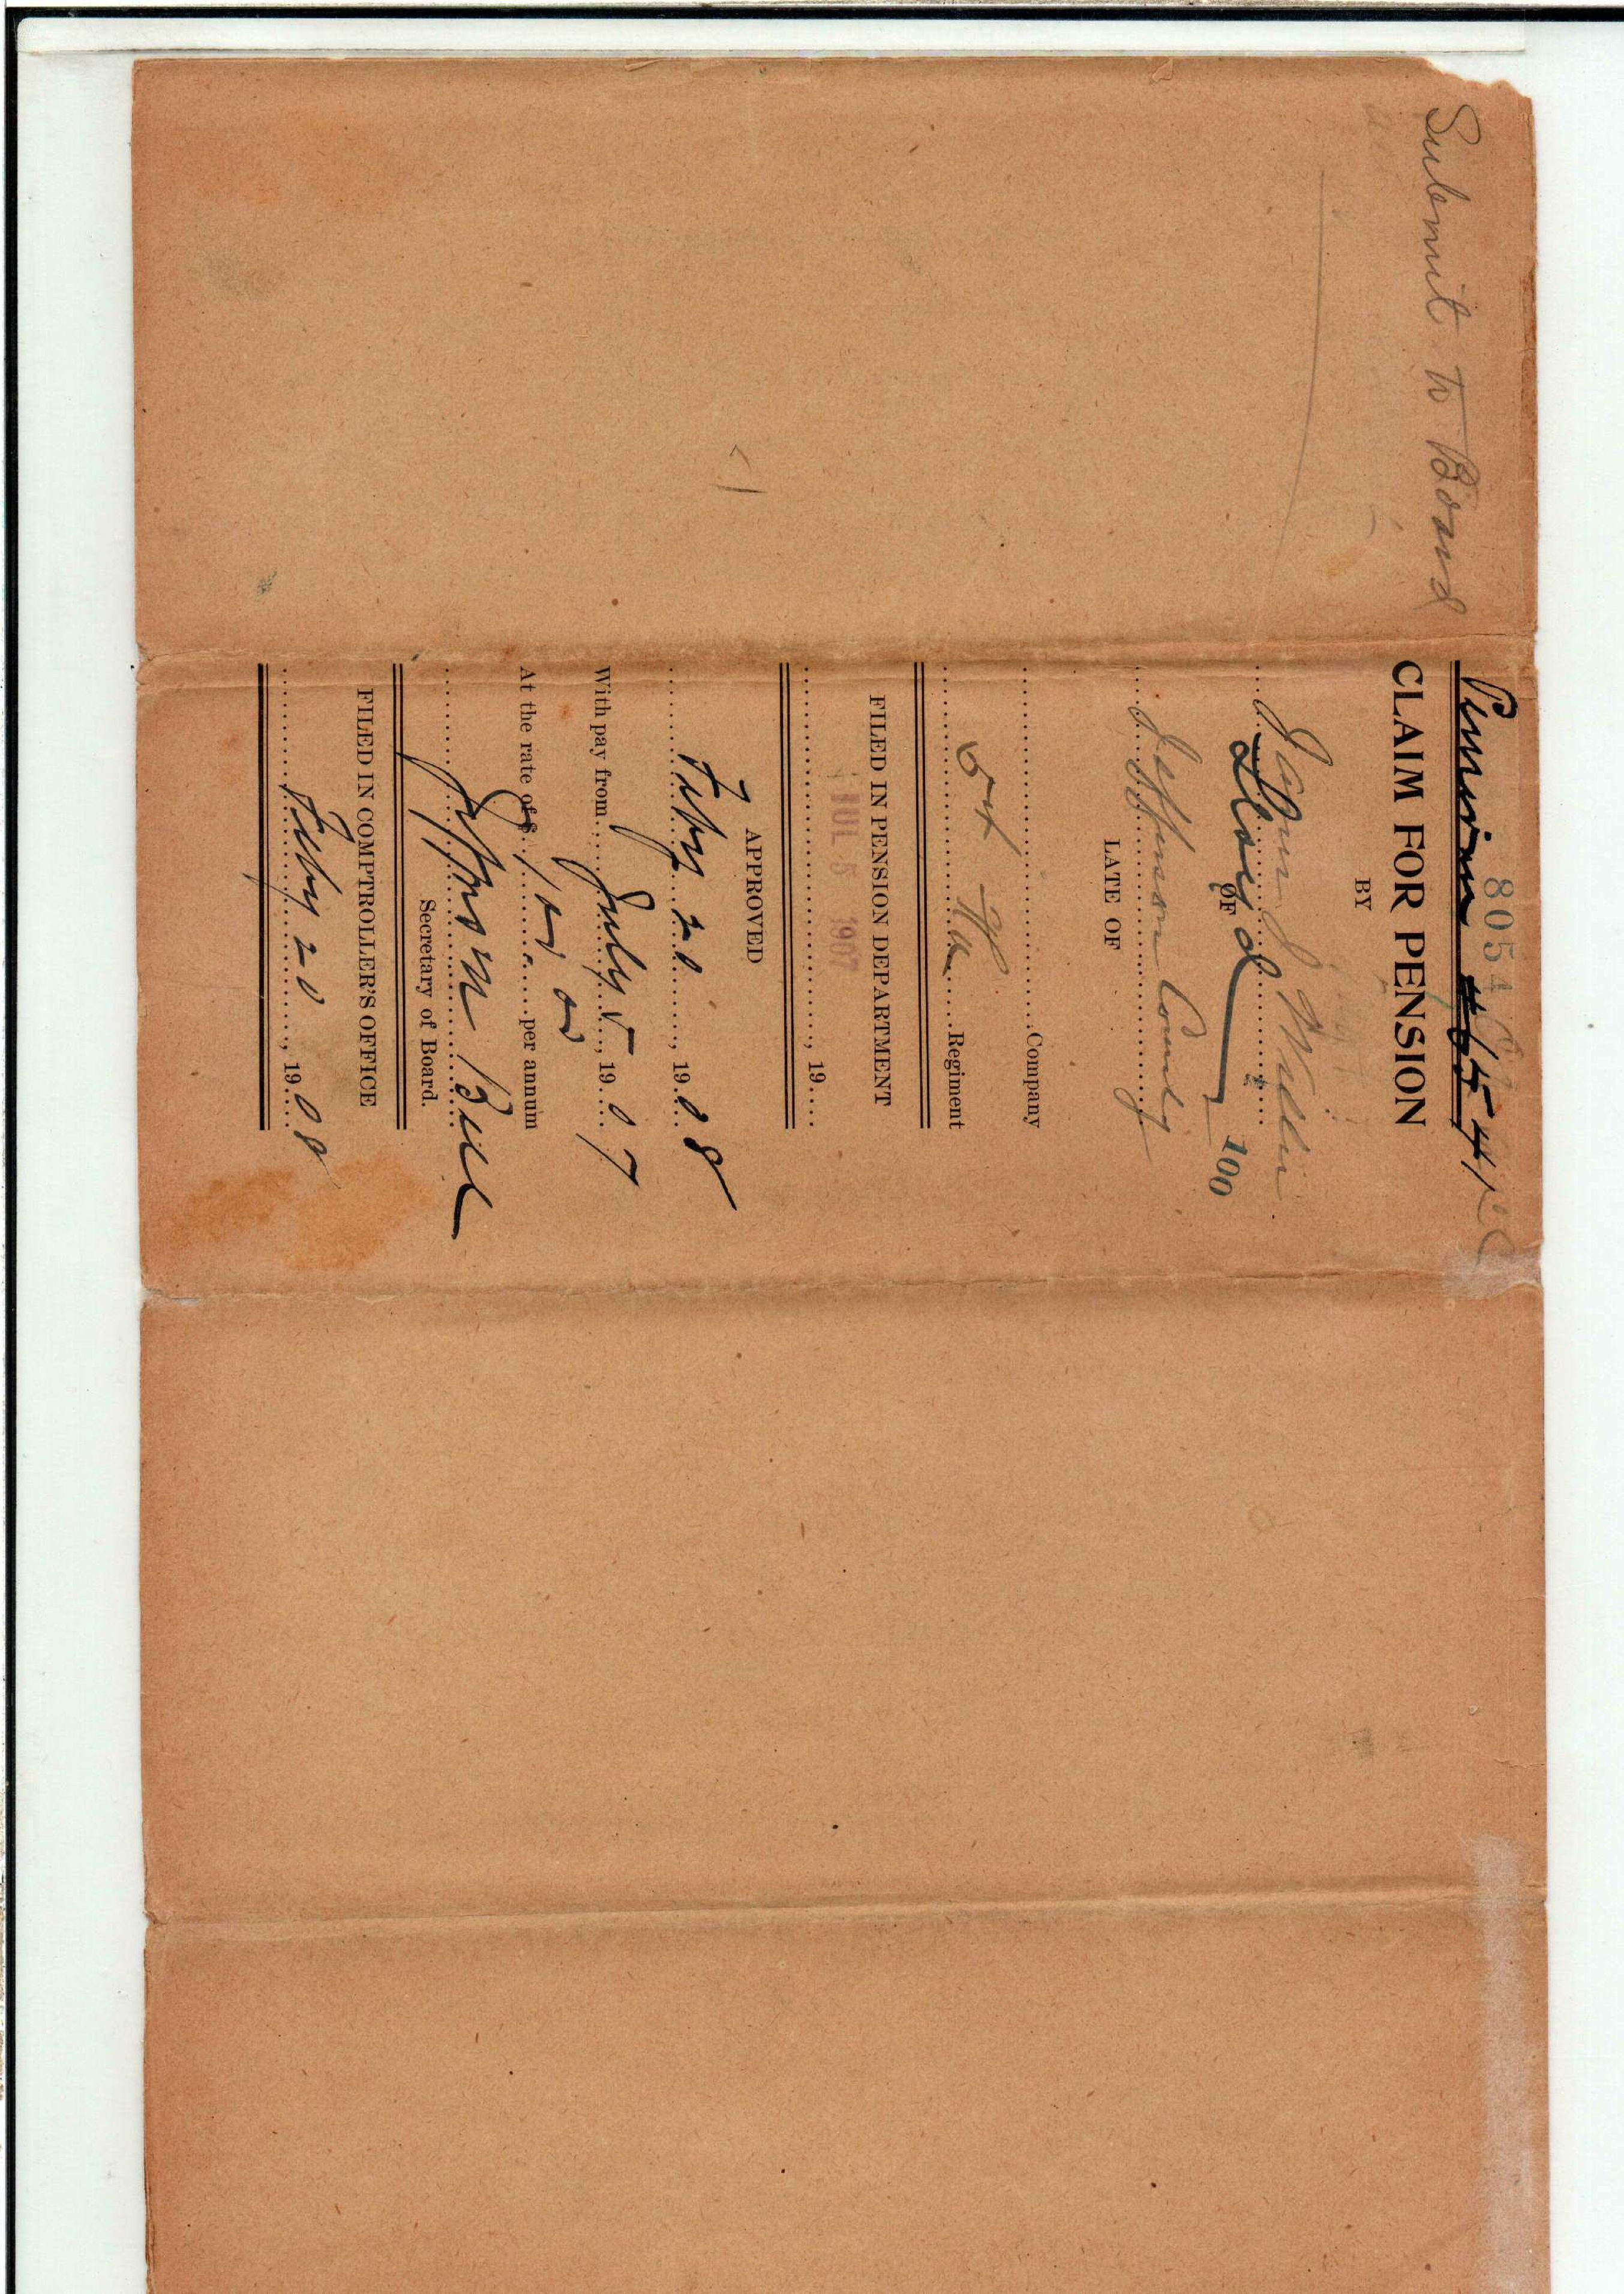 Submit to Board
8054
CLAIM FOR PENSION
BY
James J
Dead
OF
100
Jefferson County
LATE OF
Company
Regiment
FILED IN PENSION DEPARTMENT
JUL 5 1907
, 19
APPROVED
Feby 20, 1908
With pay from July 5, 1907
At the rate of $ 100 00 per annum
Jefferson Bell
Secretary of Board.
FILED IN COMPTROLLER'S OFFICE
Feby 20, 1908